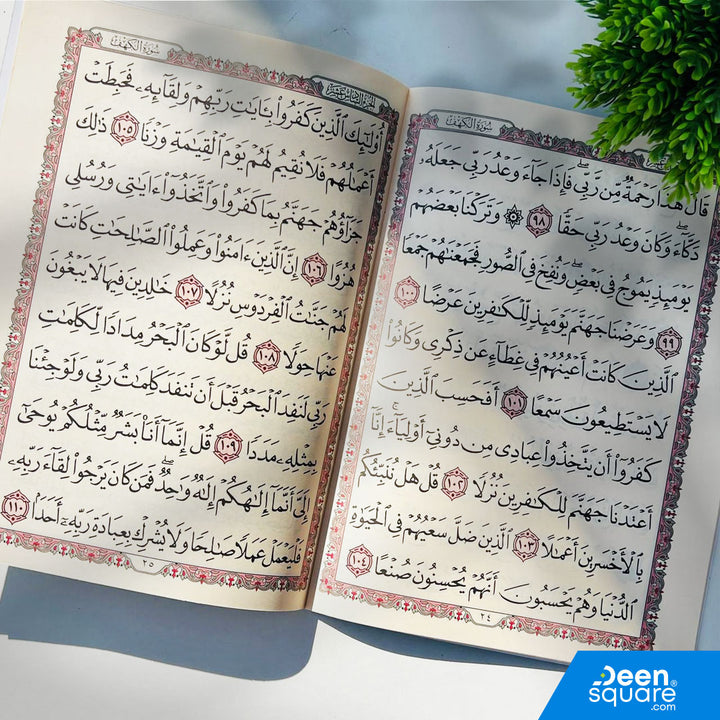 سُورَةُ الكَهْفِ
قَالَ هَٰذَا رَحْمَةٌ مِّن رَّبِّي ۖ فَإِذَا جَآءَ وَعْدُ رَبِّي جَعَلَهُۥ
دَكَّآءَ ۖ وَكَانَ وَعْدُ رَبِّي حَقًّا ٩٨ ۞ وَتَرَكْنَا بَعْضَهُمْ
يَوْمَئِذٍ يَمُوجُ فِي بَعْضٍ ۖ وَنُفِخَ فِي ٱلصُّورِ فَجَمَعْنَٰهُمْ جَمْعًا
٩٩ وَعَرَضْنَا جَهَنَّمَ يَوْمَئِذٍ لِّلْكَٰفِرِينَ عَرْضًا ١٠٠
ٱلَّذِينَ كَانَتْ أَعْيُنُهُمْ فِي غِطَآءٍ عَن ذِكْرِي وَكَانُوا۟
لَا يَسْتَطِيعُونَ سَمْعًا ١٠١ أَفَحَسِبَ ٱلَّذِينَ
كَفَرُوٓا۟ أَن يَتَّخِذُوا۟ عِبَادِي مِن دُونِيٓ أَوْلِيَآءَ ۚ إِنَّآ
أَعْتَدْنَا جَهَنَّمَ لِلْكَٰفِرِينَ نُزُلًا ١٠٢ قُلْ هَلْ نُنَبِّئُكُم
بِٱلْأَخْسَرِينَ أَعْمَٰلًا ١٠٣ ٱلَّذِينَ ضَلَّ سَعْيُهُمْ فِي ٱلْحَيَوٰةِ
ٱلدُّنْيَا وَهُمْ يَحْسَبُونَ أَنَّهُمْ يُحْسِنُونَ صُنْعًا ١٠٤
٢٤
سُورَةُ الكَهْفِ
الجزء السادس عشر
أُو۟لَٰٓئِكَ ٱلَّذِينَ كَفَرُوا۟ بِـَٔايَٰتِ رَبِّهِمْ وَلِقَآئِهِۦ فَحَبِطَتْ
أَعْمَٰلُهُمْ فَلَا نُقِيمُ لَهُمْ يَوْمَ ٱلْقِيَٰمَةِ وَزْنًا ١٠٥ ذَٰلِكَ
جَزَآؤُهُمْ جَهَنَّمُ بِمَا كَفَرُوا۟ وَٱتَّخَذُوٓا۟ ءَايَٰتِي وَرُسُلِي
هُزُوًا ١٠٦ إِنَّ ٱلَّذِينَ ءَامَنُوا۟ وَعَمِلُوا۟ ٱلصَّٰلِحَٰتِ كَانَتْ
لَهُمْ جَنَّٰتُ ٱلْفِرْدَوْسِ نُزُلًا ١٠٧ خَٰلِدِينَ فِيهَا لَا يَبْغُونَ
عَنْهَا حِوَلًا ١٠٨ قُل لَّوْ كَانَ ٱلْبَحْرُ مِدَادًا لِّكَلِمَٰتِ
رَبِّي لَنَفِدَ ٱلْبَحْرُ قَبْلَ أَن تَنفَدَ كَلِمَٰتُ رَبِّي وَلَوْ جِئْنَا
بِمِثْلِهِۦ مَدَدًا ١٠٩ قُلْ إِنَّمَآ أَنَا۠ بَشَرٌ مِّثْلُكُمْ يُوحَىٰٓ
إِلَيَّ أَنَّمَآ إِلَٰهُكُمْ إِلَٰهٌ وَٰحِدٌ ۖ فَمَن كَانَ يَرْجُوا۟ لِقَآءَ رَبِّهِۦ
فَلْيَعْمَلْ عَمَلًا صَٰلِحًا وَلَا يُشْرِكْ بِعِبَادَةِ رَبِّهِۦٓ أَحَدًۢا ١١٠
٢٥
Deen
square®
.com